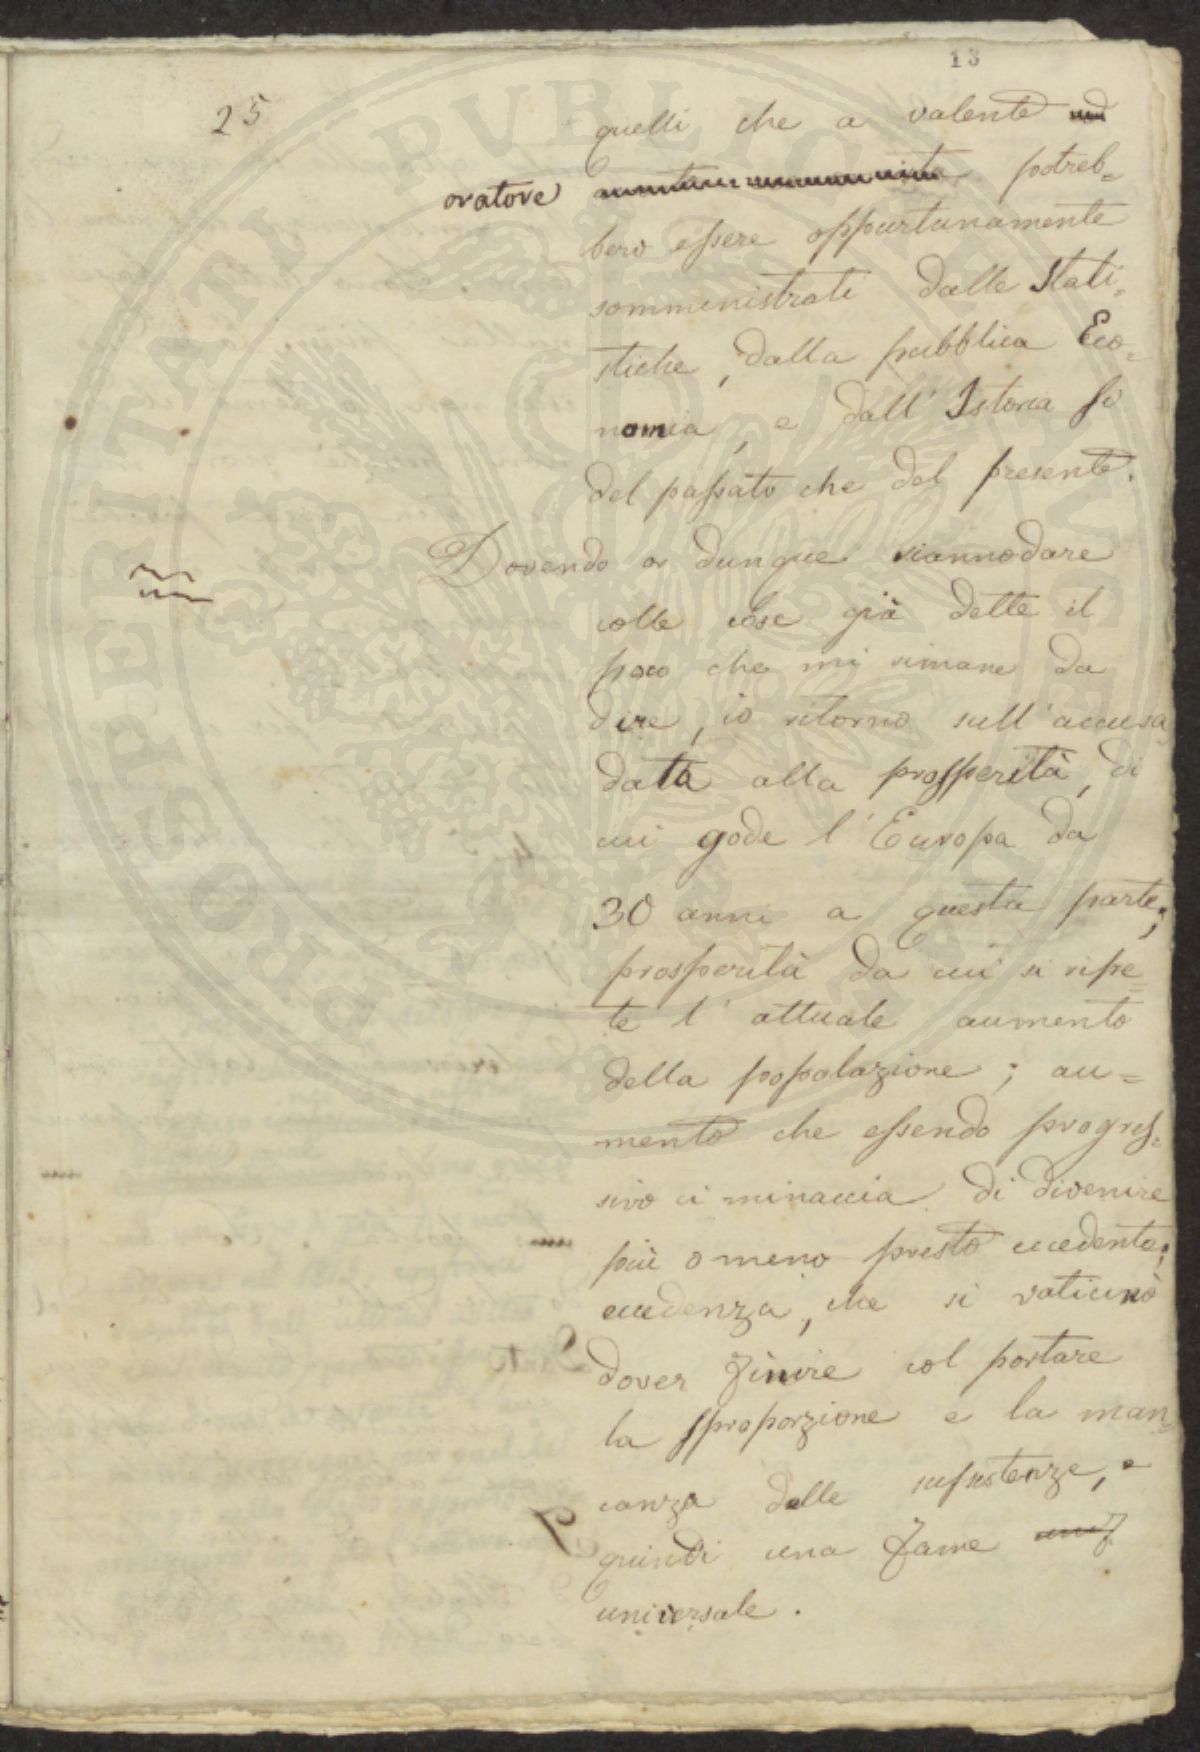 13
25
quelli che a valente
oratore potreb=
bero essere oppurtunamente
somministrati dalle Stati=
stiche, dalla pubblica Eco=
nomia, e dall' Istoria sì
del passato che del presente.
Dovendo or dunque riannodare
colle cose già dette il
poco che mi rimane da
dire, io ritorno sull' accusa
data alla prosperità, di
cui gode l' Europa da
30 anni a questa parte;
prosperità da cui si ripe=
te l' attuale aumento
della popolazione; au=
mento che essendo progres=
sivo ci minaccia di divenire
più o meno presto eccedente;
eccedenza, che si vaticinò
dover finire col portare
la sproporzione e la man=
canza delle sussistenze, e
quindi una fame
universale.
PROSPERITATI PUBLICAE